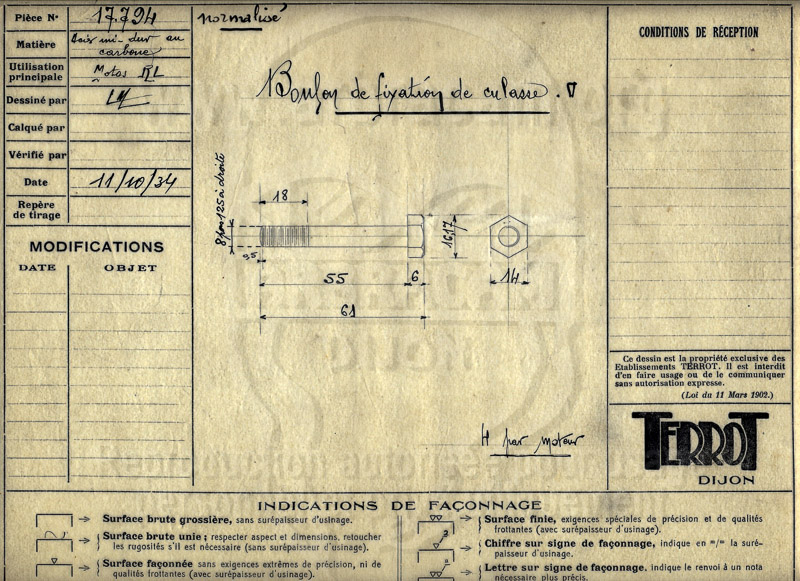 Pièce N° 17.794
Matière Acier mi-dur au carbone
Utilisation principale Motos RL
Dessiné par
Calqué par
Vérifié par
Date 11/10/34
Repère de tirage
MODIFICATIONS
DATE OBJET
normalisé
Boulon de fixation de culasse.
18
8 pas 125 à droite
16,17
55
6
61
14
4 par moteur
CONDITIONS DE RÉCEPTION
Ce dessin est la propriété exclusive des
Etablissements TERROT. Il est interdit
d'en faire usage ou de le communiquer
sans autorisation expresse.
(Loi du 11 Mars 1902.)
TERROT
DIJON
INDICATIONS DE FAÇONNAGE
Surface brute grossière, sans surépaisseur d'usinage.
Surface brute unie ; respecter aspect et dimensions, retoucher
les rugosités s'il est nécessaire (sans surépaisseur d'usinage).
Surface façonnée sans exigences extrêmes de précision, ni de
qualités frottantes (avec surépaisseur d'usinage).
Surface finie, exigences spéciales de précision et de qualités
frottantes (avec surépaisseur d'usinage).
3
Chiffre sur signe de façonnage, indique en m/m la suré-
paisseur d'usinage.
a
Lettre sur signe de façonnage, indique le renvoi à un nota
nécessaire plus précis.